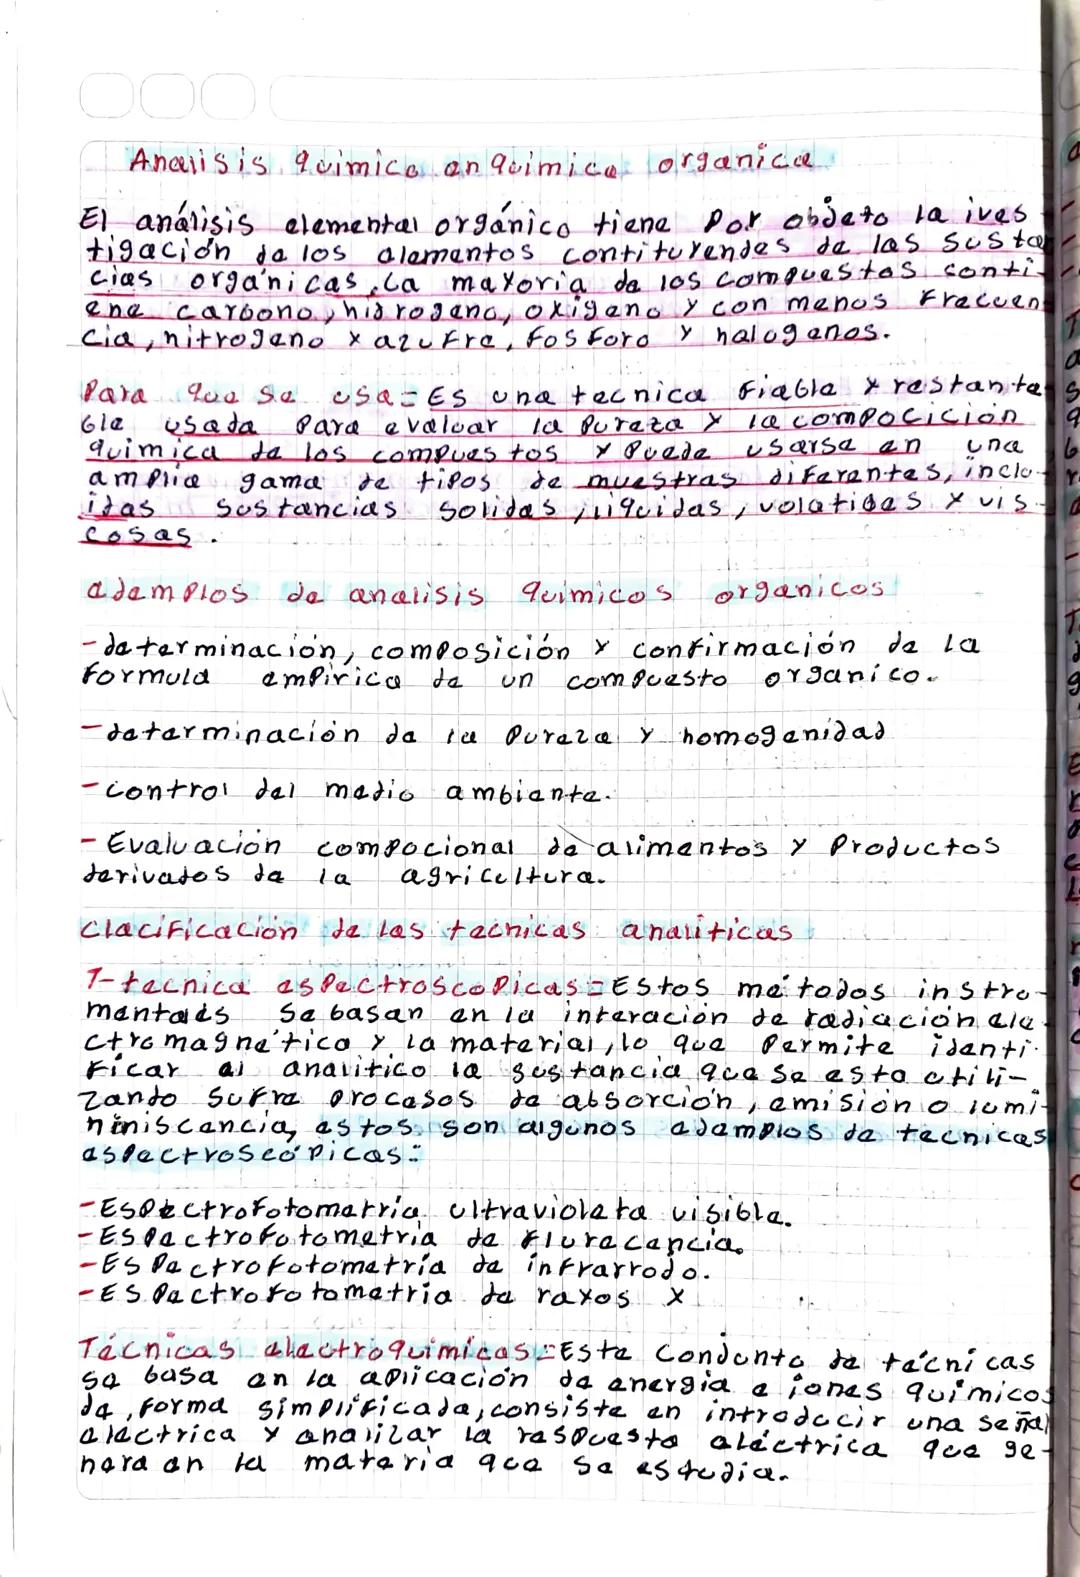 Analisis quimico en quimica organica
El análisis elemental orgánico tiene por objeto la ives
tigación de los elementos contiturendes de las susta
cias orgánicas, La mayoria de los compuestos conti-
ene carbono, hidrogeno, oxigeno y con menos frecuen
cia, nitrogeno y azufre, fosforo y halogenos.
Para que se usa = Es una tecnica fiable y restanta
ble usada para evaluar la pureza y la compocición
quimica de los compuestos y puede usarse en una
amplia gama de tipos de muestras diferentes, inclu-
idas sustancias solidas, liquidas, volatidas y vis-
cosas.
ejemplos de analisis quimicos organicos
- determinación, composición y confirmación de la
formula empirica de un compuesto organico.
- determinación de la pureza y homogenidad
- control del medio ambiente.
- Evaluación compocional de alimentos y productos
derivados de la agricultura.
Clacificación de las tecnicas analiticas
1- tecnica espectroscopicas = Estos metodos instru-
mentales se basan en la interación de radiación ele
ctromagnético y la material, lo que permite identi-
ficar al analitico la sustancia que se esta utili-
zando sufre procesos de absorción, emisión o lumi-
niniscencia, estos son algunos ejemplos de tecnicas
espectroscópicas:
- Espectrofotometría ultravioleta visible.
- Espectrofotometria de fluracencia.
- Espectrofotometría de infrarrodo.
- Espectrofotometria de rayos x
Técnicas electroquimicas = Este conjunto de técnicas
se basa en la aplicación de energia a iones químicos
de forma simplificada, consiste en introducir una señal
electrica y analizar la respuesta eléctrica que ge-
nera en la materia que se estudia.